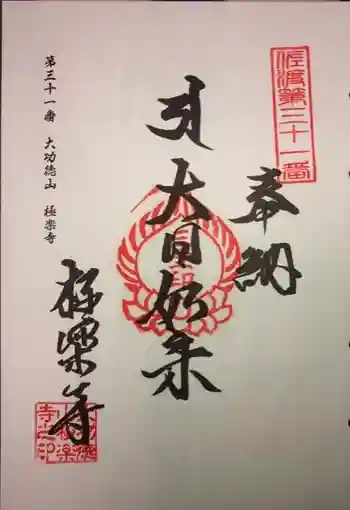 佐渡第三十一番
奉納
大日如来
極楽寺
第三十一番 大功徳山 極楽寺